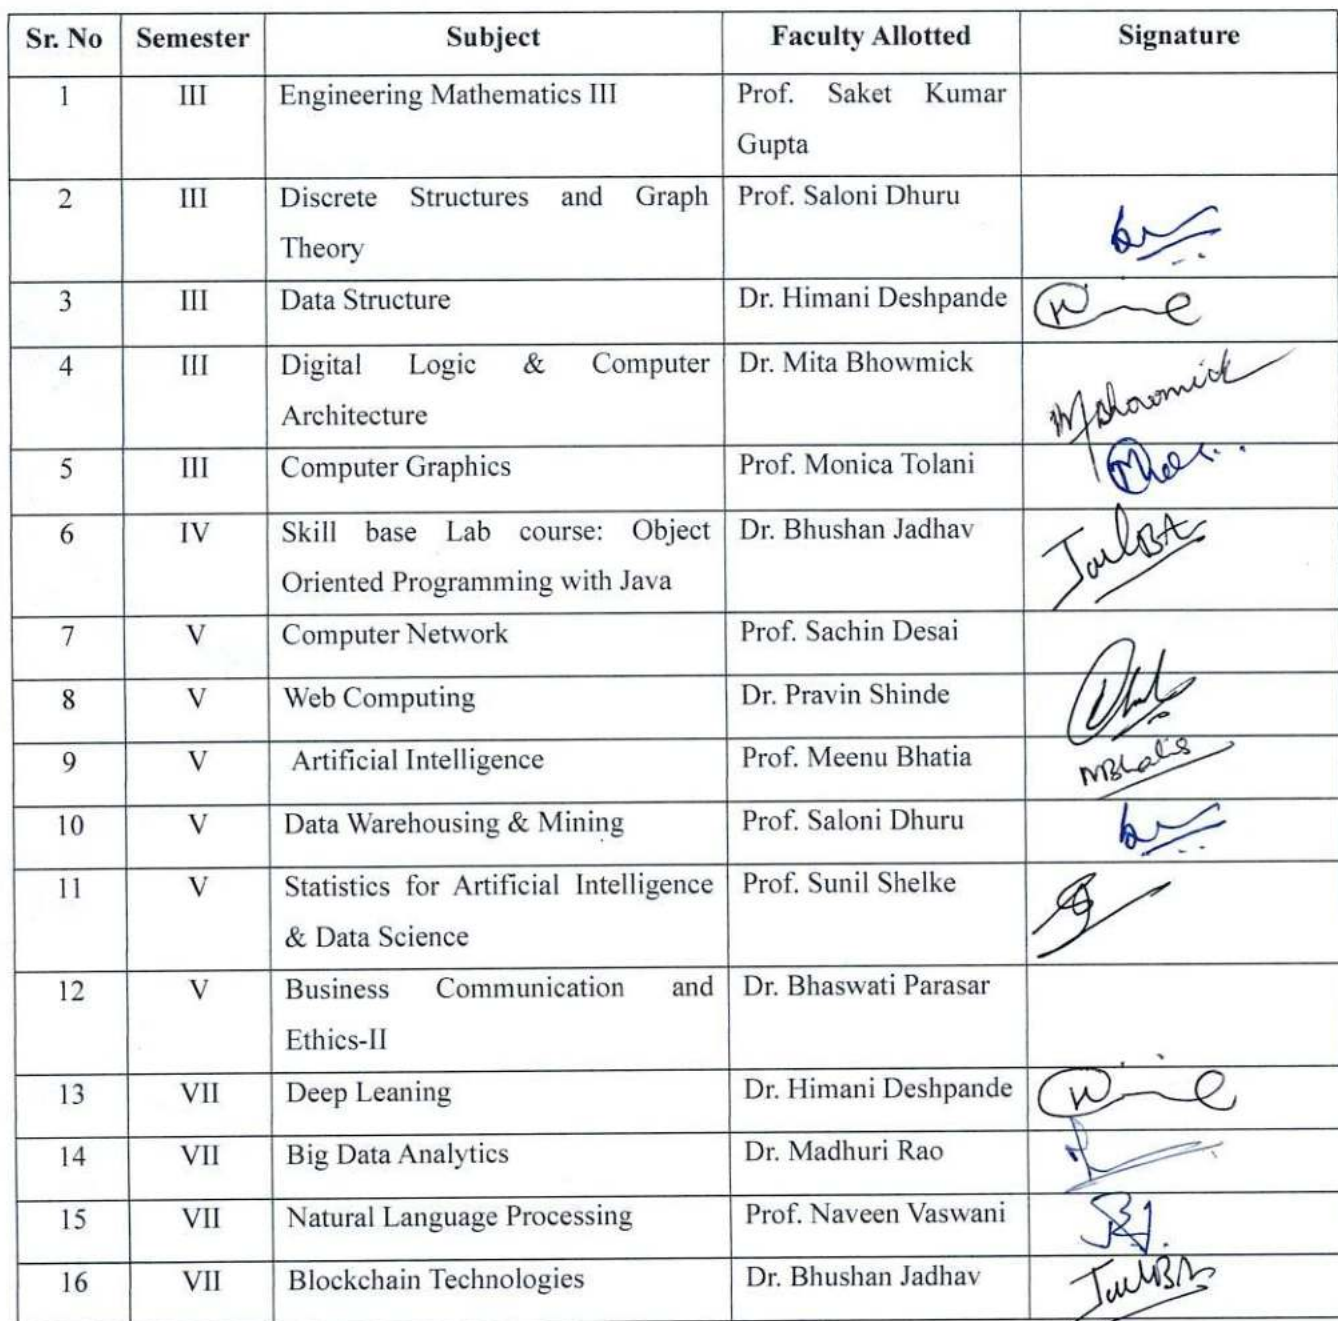 Sr. No Semester Subject Faculty Allotted Signature
1 III Engineering Mathematics III Prof. Saket Kumar
Gupta
2 III Discrete Structures and Graph Prof. Saloni Dhuru
Theory
3 III Data Structure Dr. Himani Deshpande
4 III Digital Logic & Computer Dr. Mita Bhowmick
Architecture MBhowmick
5 III Computer Graphics Prof. Monica Tolani
6 IV Skill base Lab course: Object Dr. Bhushan Jadhav
Oriented Programming with Java
7 V Computer Network Prof. Sachin Desai
8 V Web Computing Dr. Pravin Shinde
9 V Artificial Intelligence Prof. Meenu Bhatia MBhatia
10 V Data Warehousing & Mining Prof. Saloni Dhuru
11 V Statistics for Artificial Intelligence Prof. Sunil Shelke
& Data Science
12 V Business Communication and Dr. Bhaswati Parasar
Ethics-II
13 VII Deep Leaning Dr. Himani Deshpande
14 VII Big Data Analytics Dr. Madhuri Rao
15 VII Natural Language Processing Prof. Naveen Vaswani
16 VII Blockchain Technologies Dr. Bhushan Jadhav